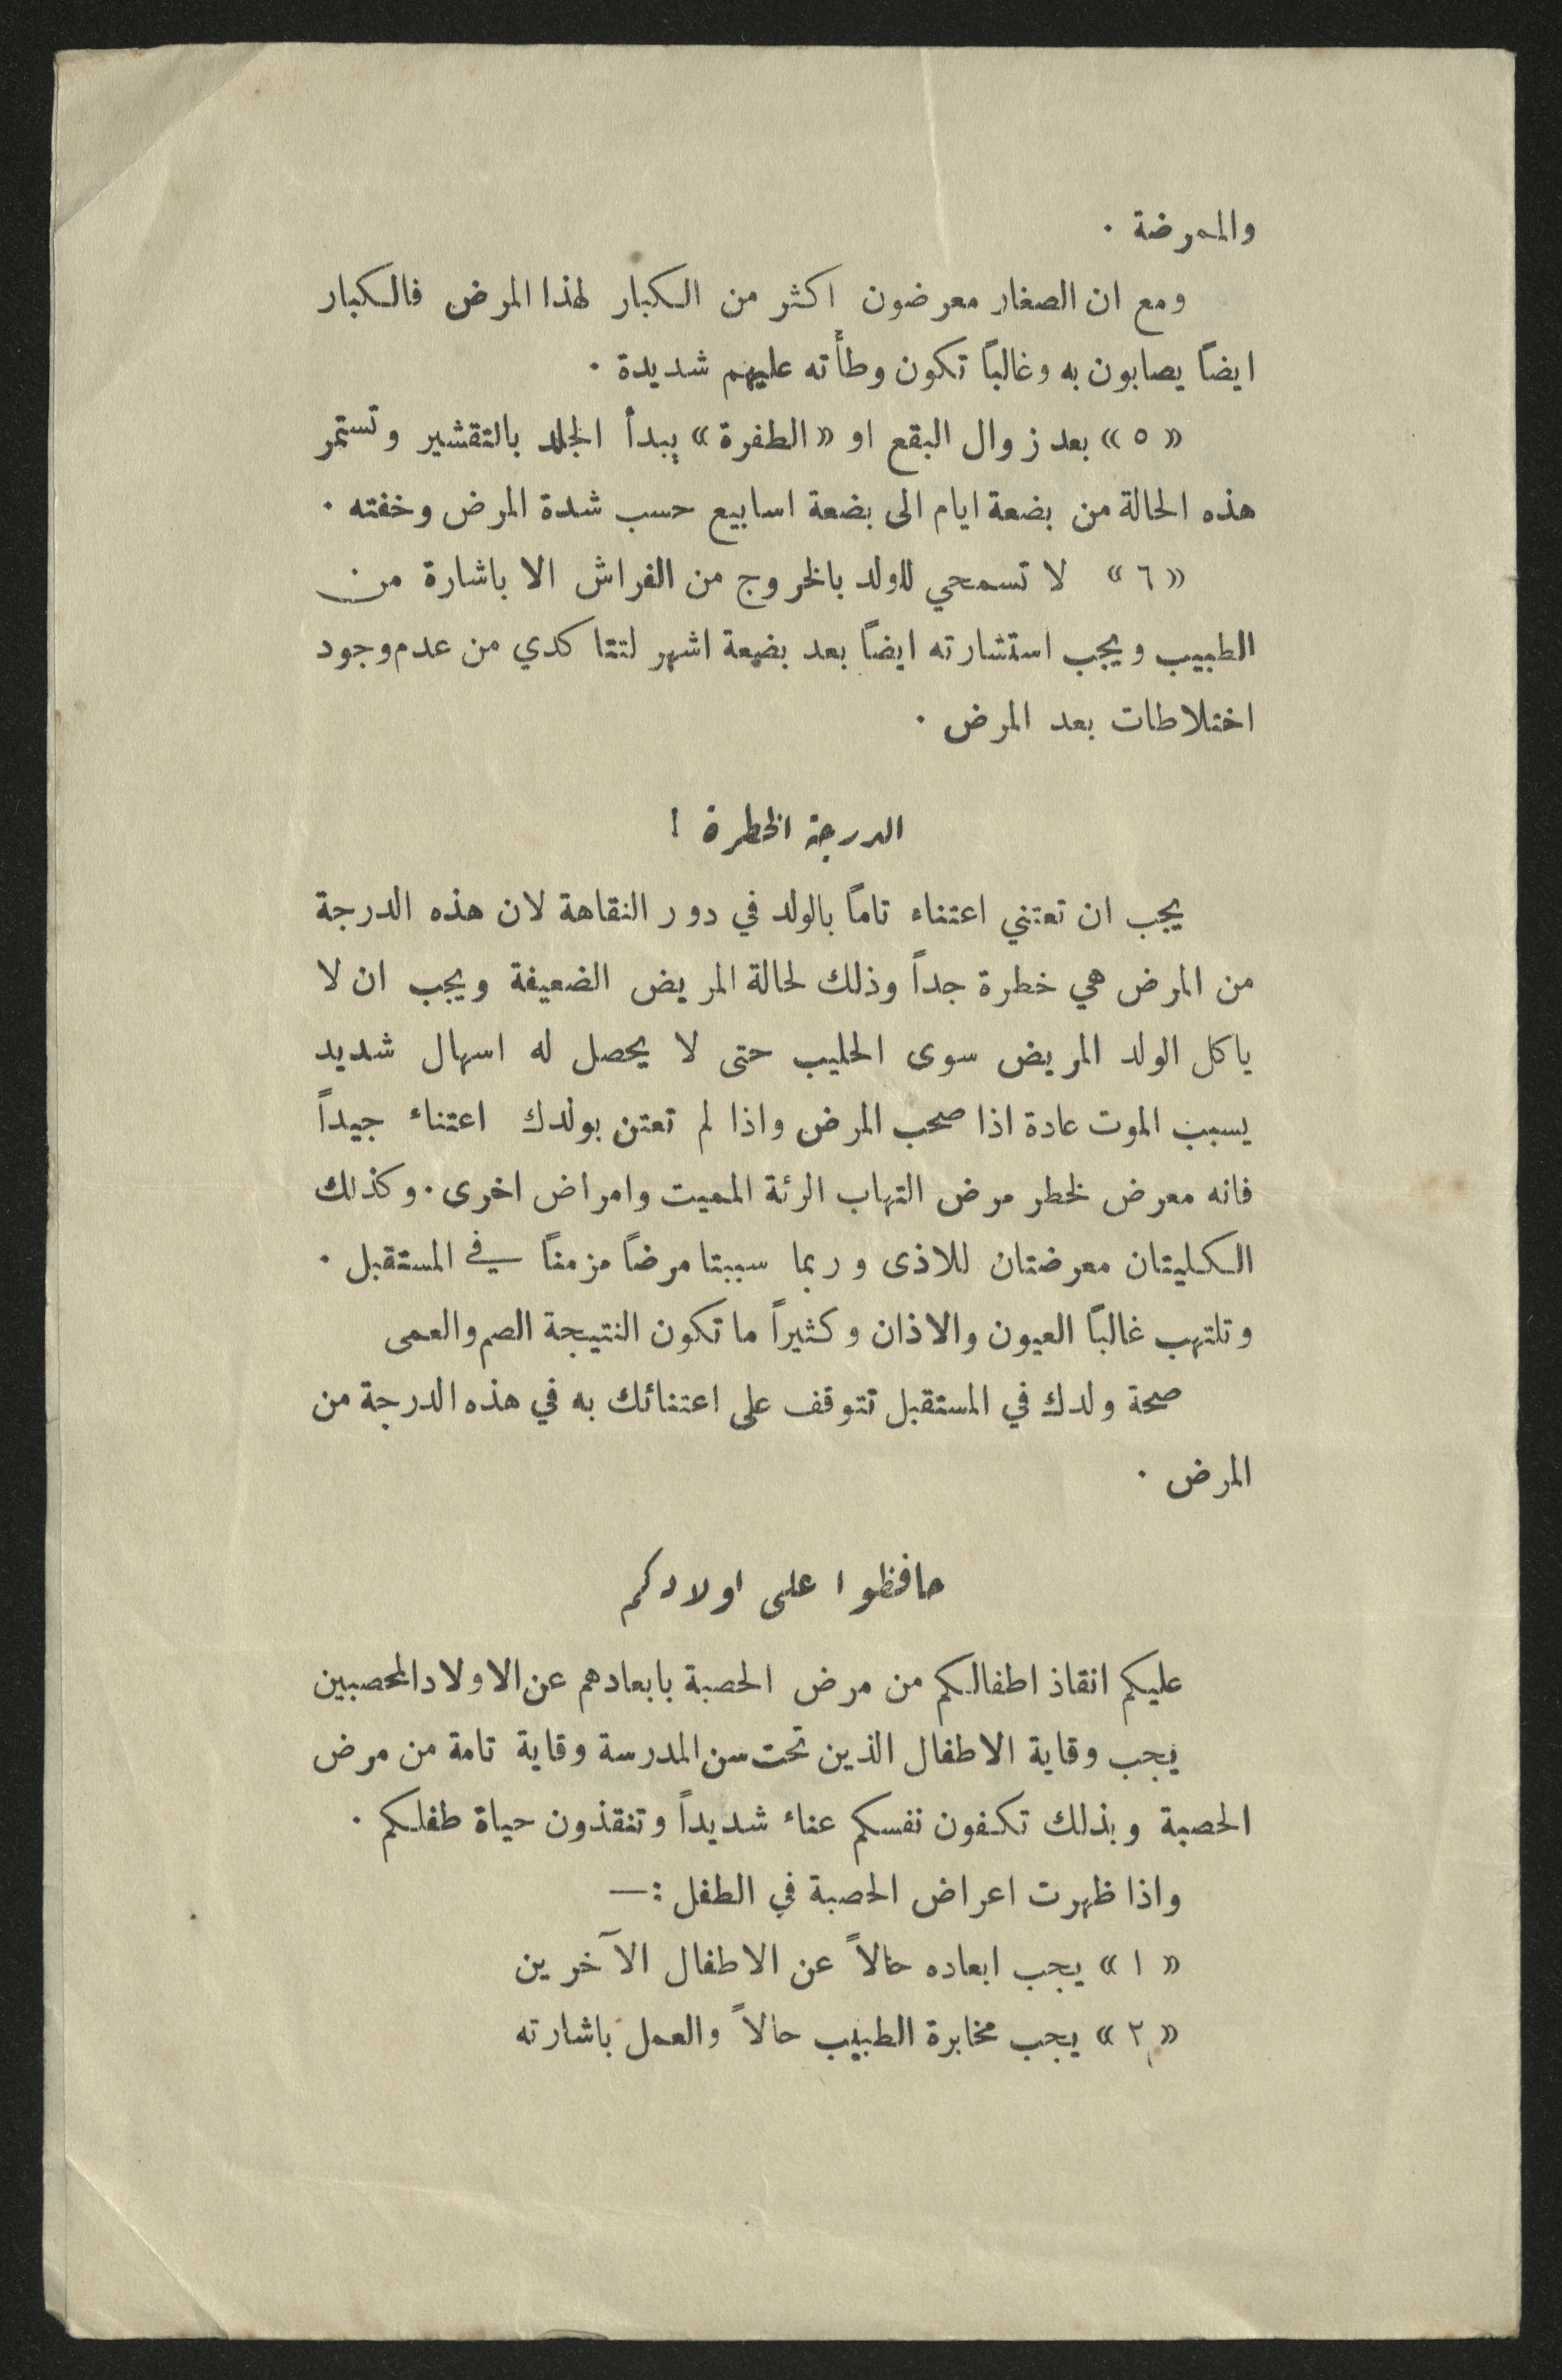 والممرضة ٠
ومع ان الصغار معرضون اكثر من الكبار لهذا المرض فالكبار
ايضاً يصابون به وغالباً تكون وطأته عليهم شديدة ٠
«٥» بعد زوال البقع او «الطفرة» يبدأ الجلد بالتقشير وتستمر
هذه الحالة من بضعة ايام الى بضعة اسابيع حسب شدة المرض وخفته ٠
«٦» لا تسمحي للولد بالخروج من الفراش الا باشارة من
الطبيب ويجب استشارته ايضاً بعد بضعة اشهر لتتاكدي من عدم وجود
اختلاطات بعد المرض ٠
الدرجة الخطرة !
يجب ان تعتني اعتناء تاماً بالولد في دور النقاهة لان هذه الدرجة
من المرض هي خطرة جداً وذلك لحالة المريض الضعيفة ويجب ان لا
ياكل الولد المريض سوى الحليب حتى لا يحصل له اسهال شديد
يسبب الموت عادة اذا صحب المرض واذا لم تعتن بولدك اعتناء جيداً
فانه معرض لخطر مرض التهاب الرئة المميت وامراض اخرى ٠ وكذلك
الكليتان معرضتان للاذى وربما سببتا مرضاً مزمناً في المستقبل ٠
وتلتهب غالباً العيون والاذان وكثيراً ما تكون النتيجة الصم والعمى
صحة ولدك في المستقبل تتوقف على اعتنائك به في هذه الدرجة من
المرض ٠
حافظوا على اولادكم
عليكم انقاذ اطفالكم من مرض الحصبة بابعادهم عن الاولاد المحصبين
يجب وقاية الاطفال الذين تحت سن المدرسة وقاية تامة من مرض
الحصبة وبذلك تكفون نفسكم عناء شديداً وتنقذون حياة طفلكم ٠
واذا ظهرت اعراض الحصبة في الطفل :—
«١» يجب ابعاده حالاً عن الاطفال الآخرين
«٢» يجب مخابرة الطبيب حالاً والعمل باشارته